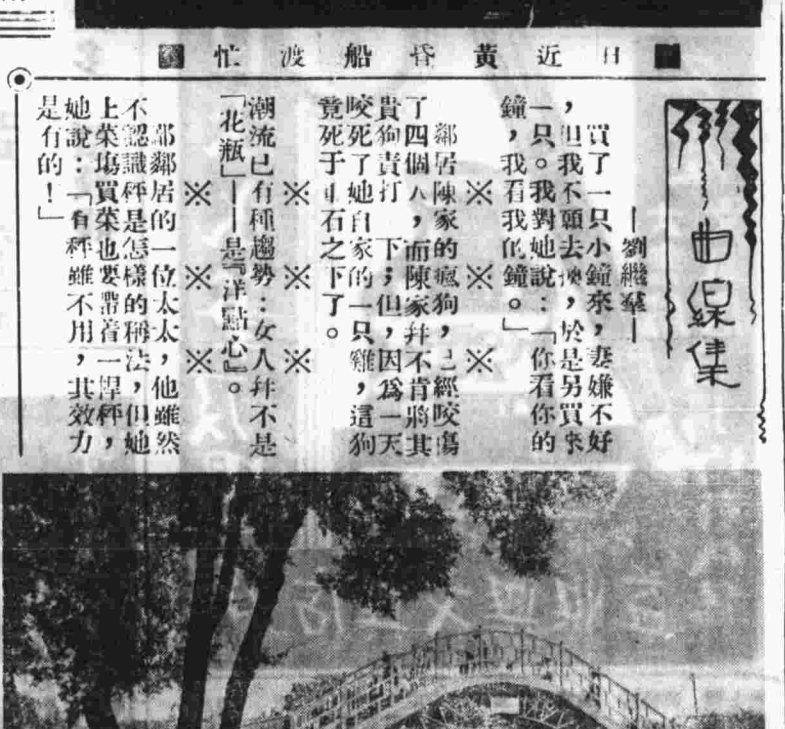 日近黃昏船渡忙
曲線集
—劉繼羣—
買了一只小鐘來，妻嫌不好
，但我不願去換，於是另買來
一只。我對她說：「你看你的
鐘，我看我的鐘。」
※　※　※
鄰居陳家的瘋狗，已經咬傷
了四個人，而陳家幷不肯將其
貴狗責打　下；但，因爲一天
咬死了她自家的一只雞，這狗
竟死于　石之下了。
※　※　※
潮流已有種趨勢：女人幷不是
「花瓶」——是『洋點心』。
※　※　※
鄰居的一位太太，他雖然
不認識秤是怎樣的稱法，但她
上菜塲買菜也要帶着一桿秤，
她說：「有秤雖不用，其效力
是有的！」